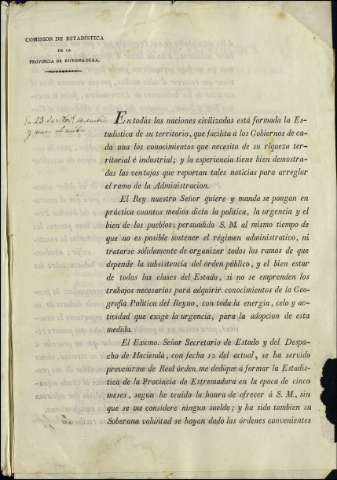 COMISION DE ESTADÍSTICA
DE LA
PROVINCIA DE ESTREMADURA.
En todas las naciones civilizadas está formada la Es-
tadística de su territorio, que facilita á los Gobiernos de ca-
da una los conocimientos que necesita de su riqueza ter-
ritorial é industrial; y la experiencia tiene bien demostra-
das las ventajas que reportan tales noticias para arreglar
el ramo de la Administracion.
El Rey nuestro Señor quiere y manda se pongan en
práctica cuantos medios dicta la política, la urgencia y el
bien de los pueblos; persuadido S. M. al mismo tiempo de
que no es posible sostener el régimen administrativo, ni
tratarse sólidamente de organizar todos los ramos de que
depende la subsistencia del órden público, y el bien estar
de todas las clases del Estado, si no se emprenden los
trabajos necesarios para adquirir conocimientos de la Geo-
grafía Política del Reyno, con toda la energía, celo y ac-
tividad que exige la urgencia, para la adopcion de esta
medida.
El Excmo. Señor Secretario de Estado y del Despa-
cho de Hacienda, con fecha 12 del actual, se ha servido
prevenirme de Real órden, me dedique á formar la Estadís-
tica de la Provincia de Estremadura en la época de cinco
meses, segun he tenido la honra de ofrecer á S. M., sin
que se me considere ningun sueldo; y ha sido tambien su
Soberana voluntad se hayan dado las órdenes convenientes